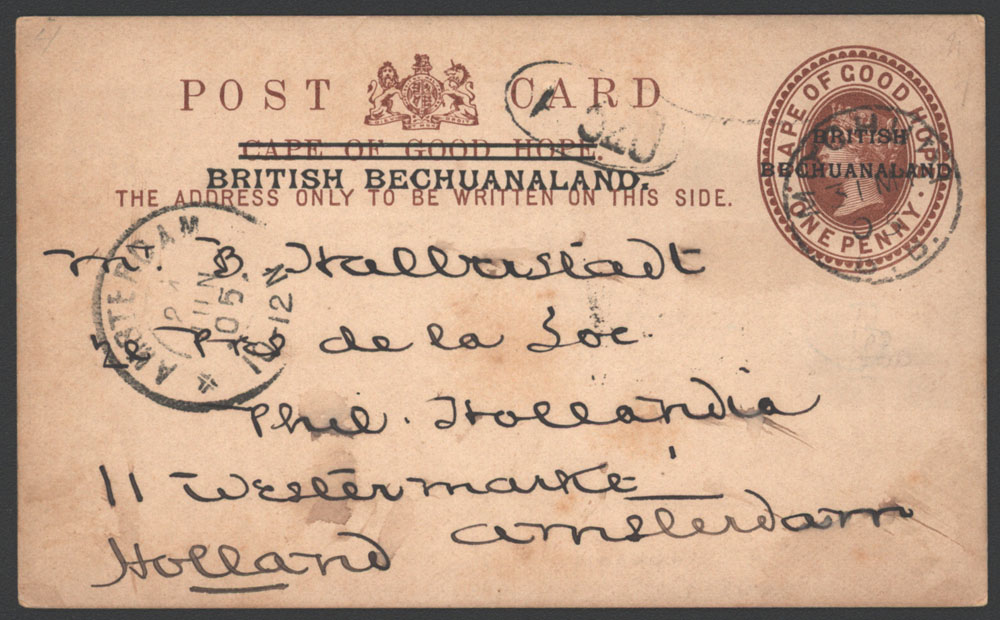 POST CARD
CAPE OF GOOD HOPE
BRITISH BECHUANALAND.
THE ADDRESS ONLY TO BE WRITTEN ON THIS SIDE.
CAPE OF GOOD HOPE
BRITISH
BECHUANALAND
ONE PENNY
AMSTERDAM
JUN
05
10-12 N
Mr. B Halberstadt
Pres de la Soc
Phil. Hollandia
11 Westermarkt
Amsterdam
Holland